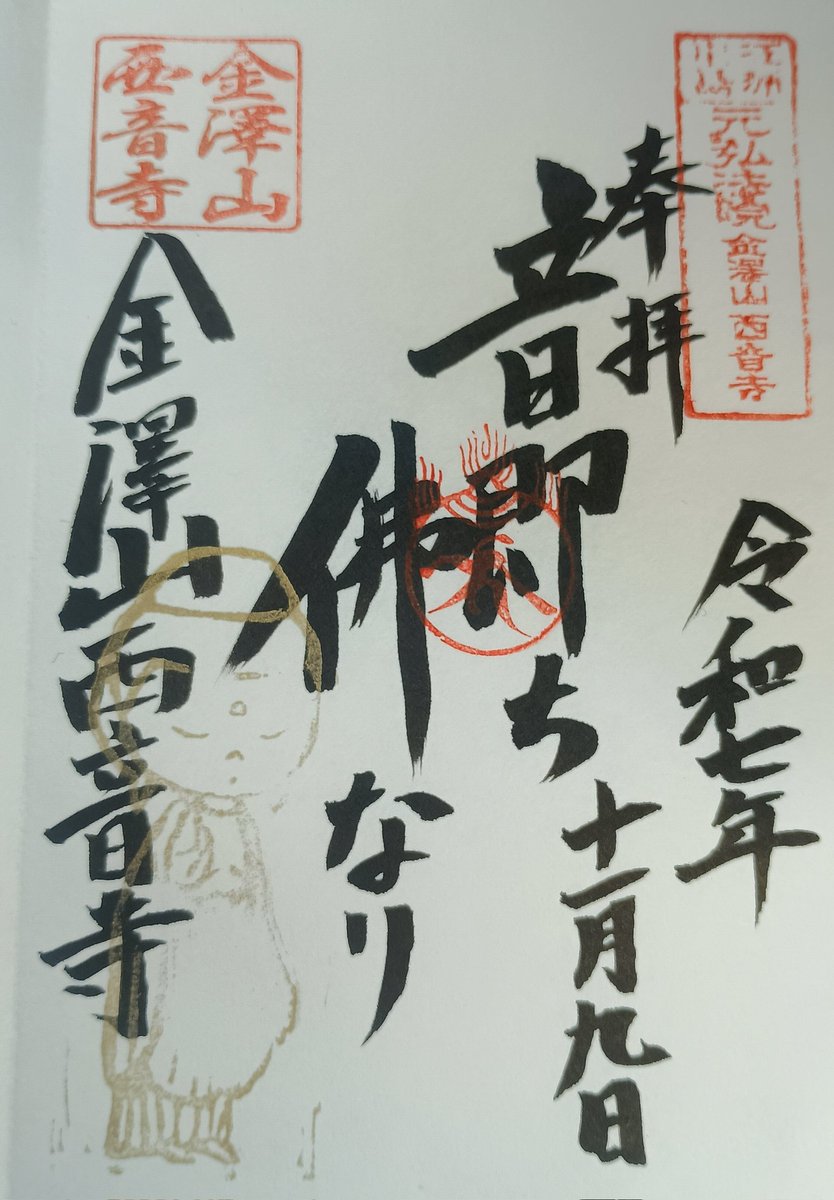 元弘法院 金澤山 西音寺
奉拝
令和七年
十一月九日
音即ち
佛なり
金澤山
西音寺
金澤山西音寺